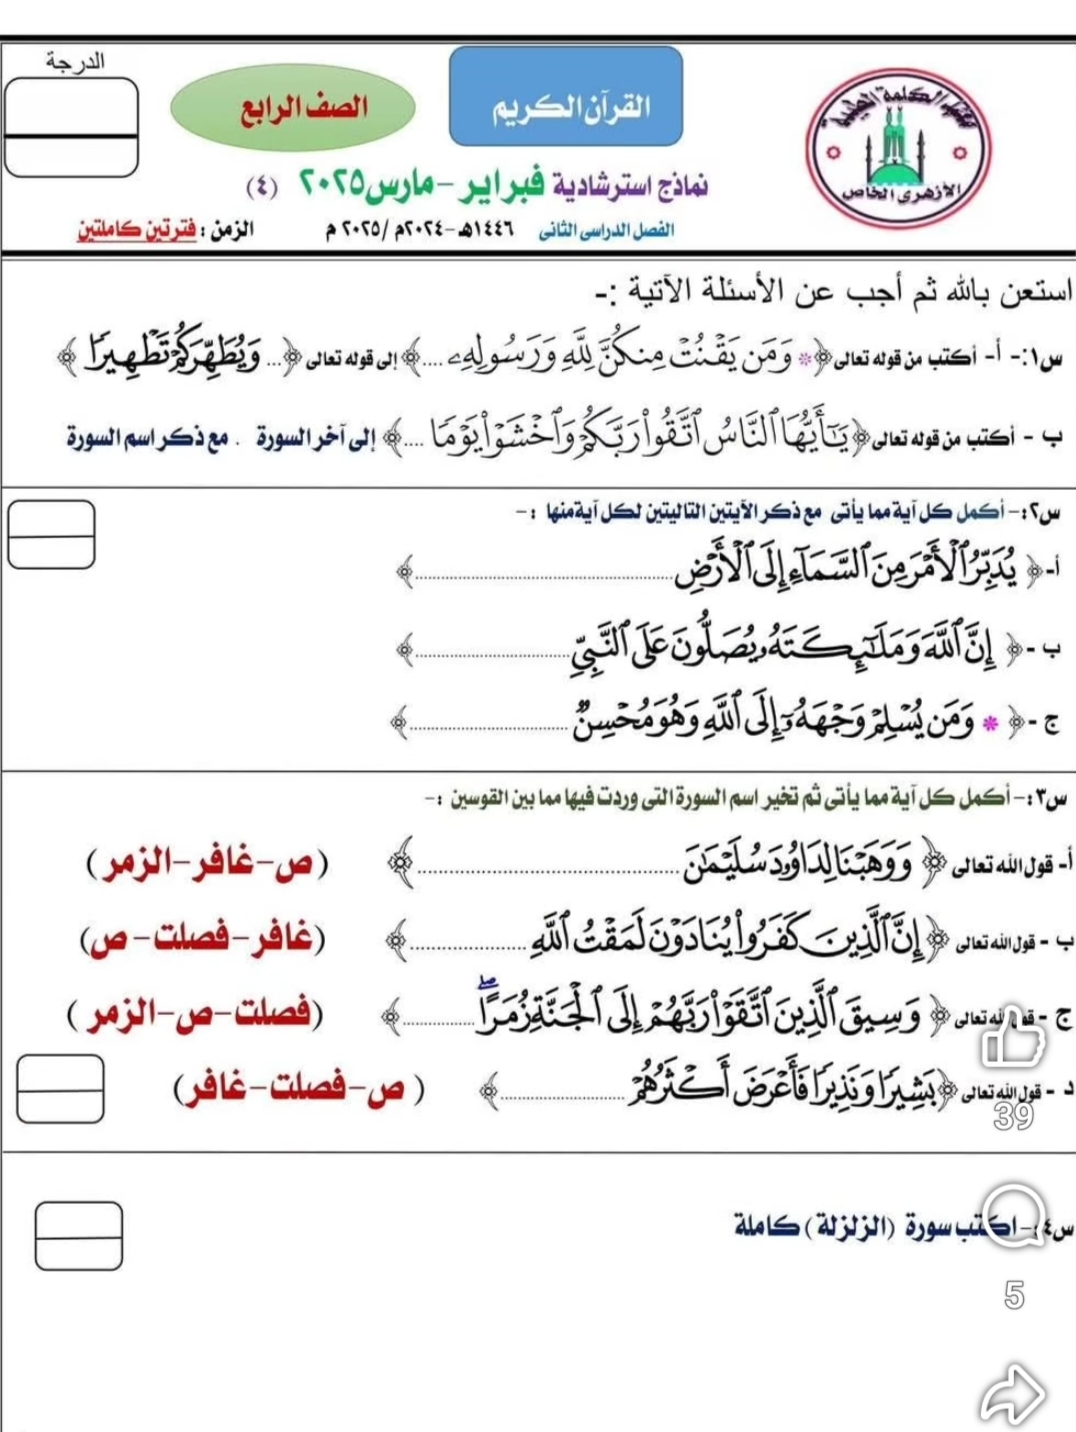 الدرجة
القرآن الكريم
الصف الرابع
نماذج استرشادية فبراير - مارس ٢٠٢٥ (٤)
الفصل الدراسى الثانى ١٤٤٦هـ - ٢٠٢٤م / ٢٠٢٥ م الزمن : فترتين كاملتين
الأزهرى الخاص
استعن بالله ثم أجب عن الأسئلة الآتية :-
س١:- أ- أكتب من قوله تعالى ﴿* وَمَن يَقْنُتْ مِنكُنَّ لِلَّهِ وَرَسُولِهِۦ ....﴾ إلى قوله تعالى ﴿... وَيُطَهِّرَكُمْ تَطْهِيرًا ﴾
ب - أكتب من قوله تعالى ﴿يَٰٓأَيُّهَا ٱلنَّاسُ ٱتَّقُوا۟ رَبَّكُمْ وَٱخْشَوْا۟ يَوْمًا ....﴾ إلى آخر السورة . مع ذكر اسم السورة
س٢:- أكمل كل آية مما يأتى مع ذكر الآيتين التاليتين لكل آية منها :-
أ- ﴿ يُدَبِّرُ ٱلْأَمْرَ مِنَ ٱلسَّمَآءِ إِلَى ٱلْأَرْضِ ........................ ﴾
ب - ﴿ إِنَّ ٱللَّهَ وَمَلَٰٓئِكَتَهُۥ يُصَلُّونَ عَلَى ٱلنَّبِىِّ ........................ ﴾
ج - ﴿ * وَمَن يُسْلِمْ وَجْهَهُۥٓ إِلَى ٱللَّهِ وَهُوَ مُحْسِنٌ ........................ ﴾
س٣:- أكمل كل آية مما يأتى ثم تخير اسم السورة التى وردت فيها مما بين القوسين :-
أ- قول الله تعالى ﴿ وَوَهَبْنَا لِدَاوُۥدَ سُلَيْمَٰنَ ........................ ﴾ (ص-غافر-الزمر)
ب - قول الله تعالى ﴿ إِنَّ ٱلَّذِينَ كَفَرُوا۟ يُنَادَوْنَ لَمَقْتُ ٱللَّهِ .................... ﴾ (غافر-فصلت-ص)
ج - قول الله تعالى ﴿ وَسِيقَ ٱلَّذِينَ ٱتَّقَوْا۟ رَبَّهُمْ إِلَى ٱلْجَنَّةِ زُمَرًا ۖ ............ ﴾ (فصلت-ص-الزمر)
د - قول الله تعالى ﴿ بَشِيرًا وَنَذِيرًا فَأَعْرَضَ أَكْثَرُهُمْ .................... ﴾ (ص-فصلت-غافر)
39
س٤:- اكتب سورة (الزلزلة) كاملة
5